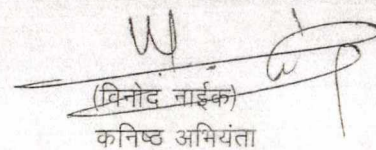 (विनोद नाईक)
कनिष्ठ अभियंता